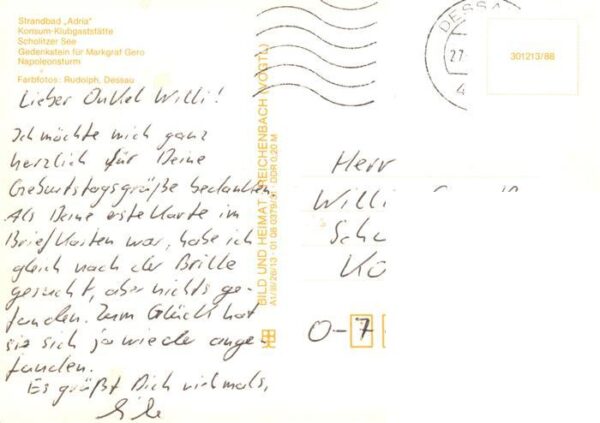 Strandbad „Adria"
Konsum-Klubgaststätte
Scholitzer See
Gedenkstein für Markgraf Gero
Napoleonsturm
Farbfotos: Rudolph, Dessau
Lieber Onkel Willi!
Ich möchte mich ganz
herzlich für Deine
Geburtstagsgrüße bedanken.
Als Deine erste Karte im
Briefkasten war, habe ich
gleich nach der Brille
gesucht, aber nichts ge-
funden. Zum Glück hat
sie sich ja wieder ange-
funden.
Es grüßt Dich vielmals,
BILD UND HEIMAT REICHENBACH (VOGTL)
A1/III/26/13 · 01 08 0379/31 DDR 0,20 M
DESSAU
27.
4
301213/88
Herr
Willi
Sch
Kö
O-7